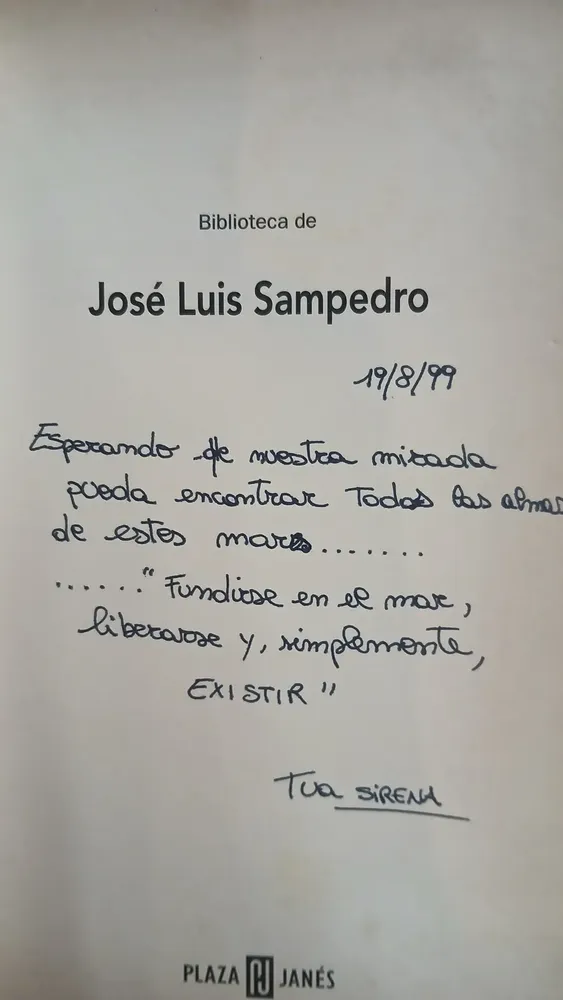 Biblioteca de
José Luis Sampedro
19/8/99
Esperando que nuestra mirada
pueda encontrar Todas las almas
de estes mares.......
......" Fundirse en el mar,
liberarse y, simplemente,
EXISTIR"
Tua SiRENA
PLAZA JANÉS